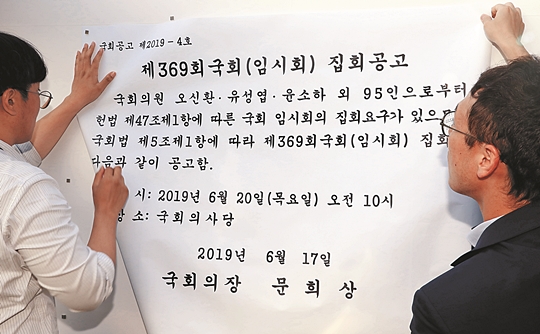 국회공고 제2019-4호
제369회국회(임시회) 집회공고
국회의원 오신환·유성엽·윤소하 외 95인으로부터
헌법 제47조제1항에 따른 국회 임시회의 집회요구가 있으므
국회법 제5조제1항에 따라 제369회국회(임시회) 집회
다음과 같이 공고함.
시: 2019년 6월 20일(목요일) 오전 10시
소: 국회의사당
2019년 6월 17일
국회의장 문희상